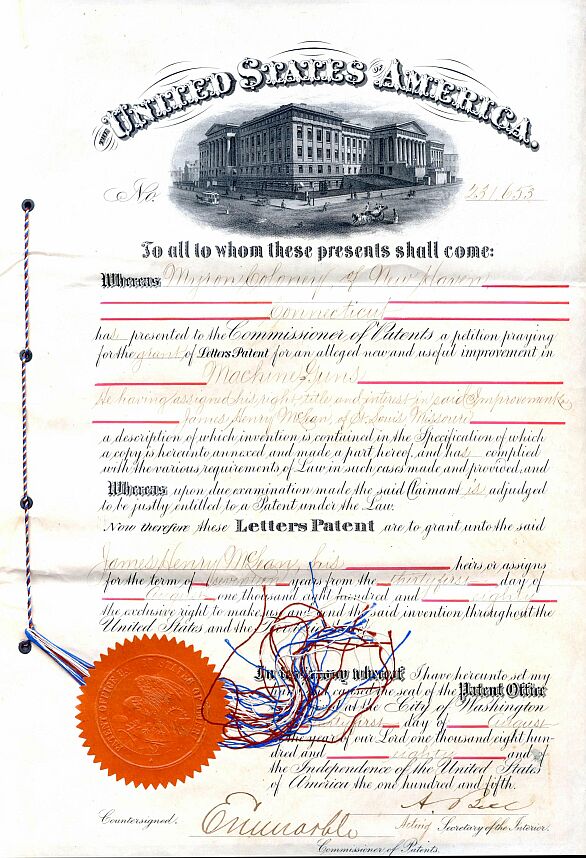 THE UNITED STATES OF AMERICA.
No. 231653
To all to whom these presents shall come:
Whereas Myron Coloney of New Haven,
Connecticut
has presented to the Commissioner of Patents a petition praying
for the grant of Letters Patent for an alleged new and useful improvement in
Machine Guns
He having assigned his right, title and interest in said Improvement to
James Henry McLean, of St. Louis, Missouri
a description of which invention is contained in the Specification of which
a copy is hereunto annexed and made a part hereof, and has complied
with the various requirements of Law in such cases made and provided, and
Whereas upon due examination made the said Claimant is adjudged
to be justly entitled to a Patent under the Law.
Now therefore these Letters Patent are to grant unto the said
James Henry McLean, his heirs or assigns
for the term of seventeen years from the thirty first day of
August one thousand eight hundred and eighty
the exclusive right to make, use and the said invention throughout the
United States and the
In testimony whereof I have hereunto set my
caused the seal of the Patent Office
at the City of Washington
first day of August
the year of our Lord one thousand eight hun-
dred and eighty and of
the Independence of the United States
of America the one hundred and fifth.
Countersigned.
Acting Secretary of the Interior.
Commissioner of Patents.